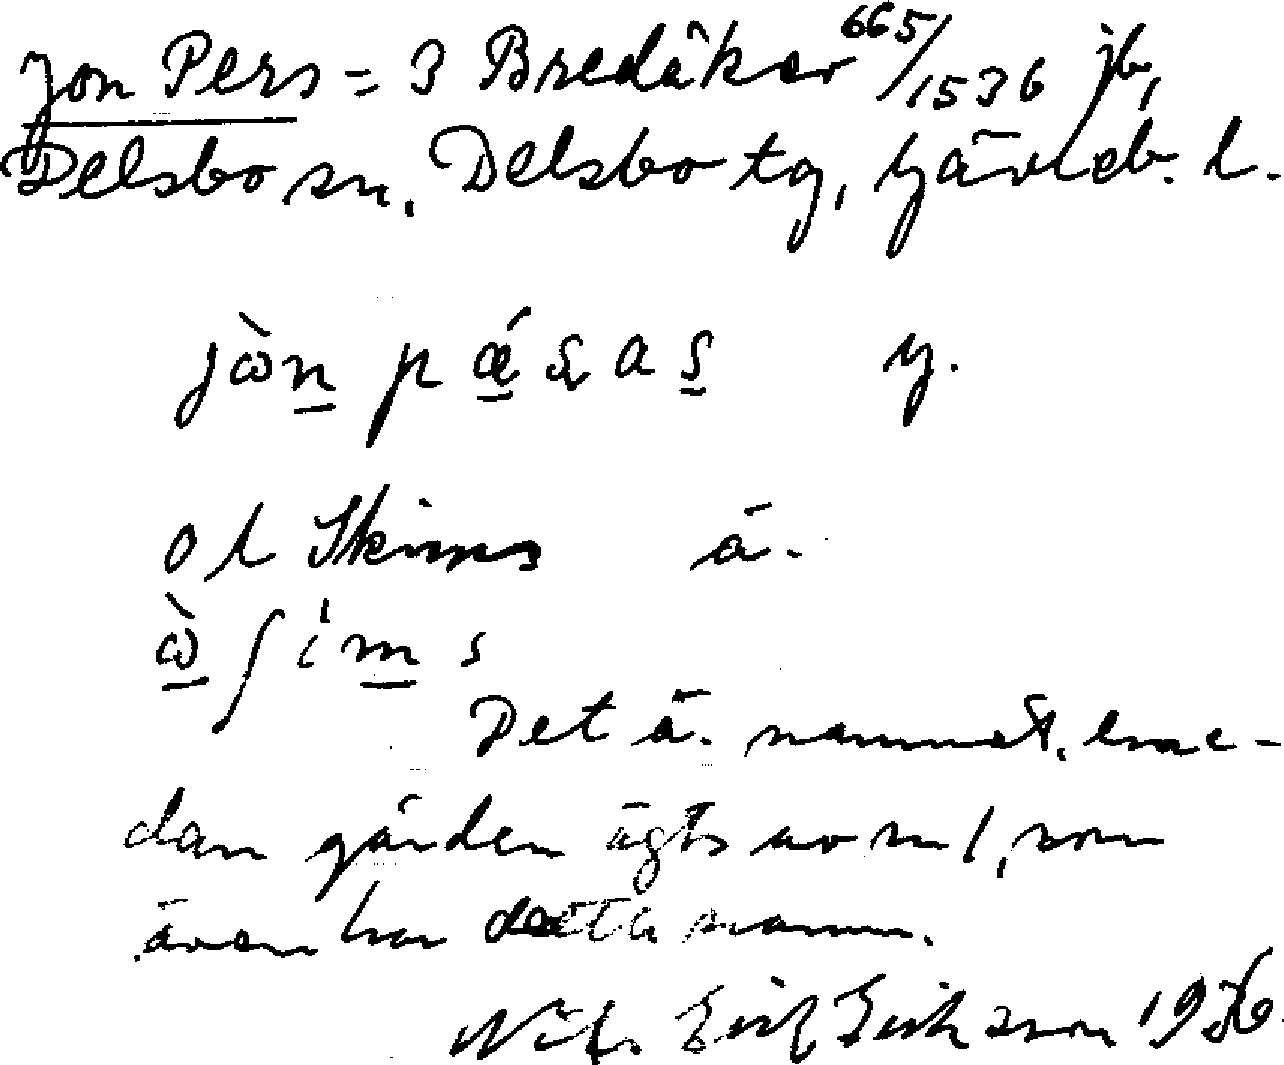 Jon Pers = 3 Bredåker 665/1536 jb,
Delsbo sn. Delsbo tg, Gävleb. l.
jòn pǽ̱sas y.
ol Skinns ä.
ò̱ ʃ i m̱ s
Det ä. namnet, eme-
dan gården ägts av m 1, som
även har detta namn.
Nils Erik Eriksson 1936